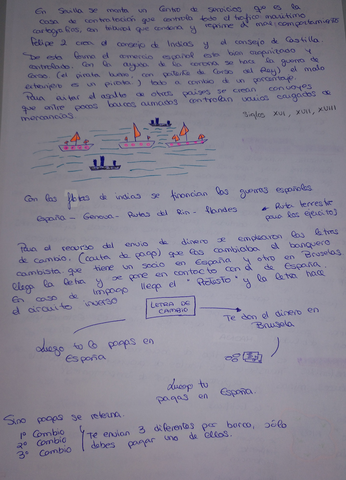 En Sevilla se monta un Centro de servicios que es la
casa de contratación que controla todo el tráfico marítimo
cartográfico, con talleres que ordena y registra el más competente
Felipe 2 crea el consejo de Indias y el consejo de Castilla.
De esta forma el comercio español esta bien organizado y
controlado. Con la ayuda de la corona se hace la guerra de
corso (el pirata bueno, con patente de Corso del Rey) el malo
extranjero es un pirata) todo a cambio de un porcentaje.
Para evitar el asalto de otros países se crean convoyes
que entre pocos barcos armados controlan varios cargados de
mercancías.
Siglos XVI, XVII, XVIII
Con las flotas de indias se financian las guerras españolas
España - Genova - Rutas del Rin - Flandes
* Ruta terrestre
para los ejércitos
Para el recurso del envio de dinero se emplearon las letras
de cambio, (carta de pago) que las cambiaba el banquero
cambista que tiene un socio en España y otro en Bruselas
llega la letra y se pone en contacto con el de España.
En caso de impago llega el "Protesto" y la letra hace
el circuito inverso
LETRA DE
CAMBIO
Te dan el dinero en
Bruselas
Luego tu lo pagas en
España
Luego tu
pagas en España.
Sino pagas se retorna.
1º Cambio
2º Cambio
3º Cambio
Te envian 3 diferentes por barco, sólo
debes pagar uno de ellos.